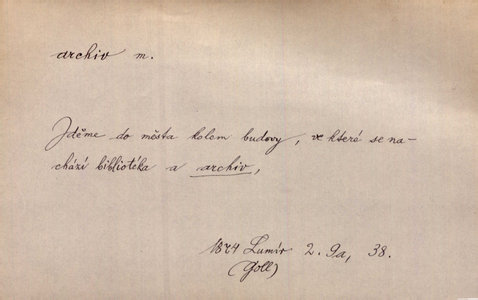 archiv m.
Jděme do města kolem budovy, ve které se na-
chází bibliotéka a archiv,
1874 Lumír 2. 9a, 38.
(Goll)